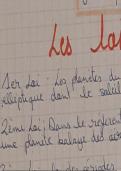 Les lo
1er Loi : Les planètes du
elliptique dont le soleil
2ème Loi : Dans le référent
une planète balaye des air
périodes